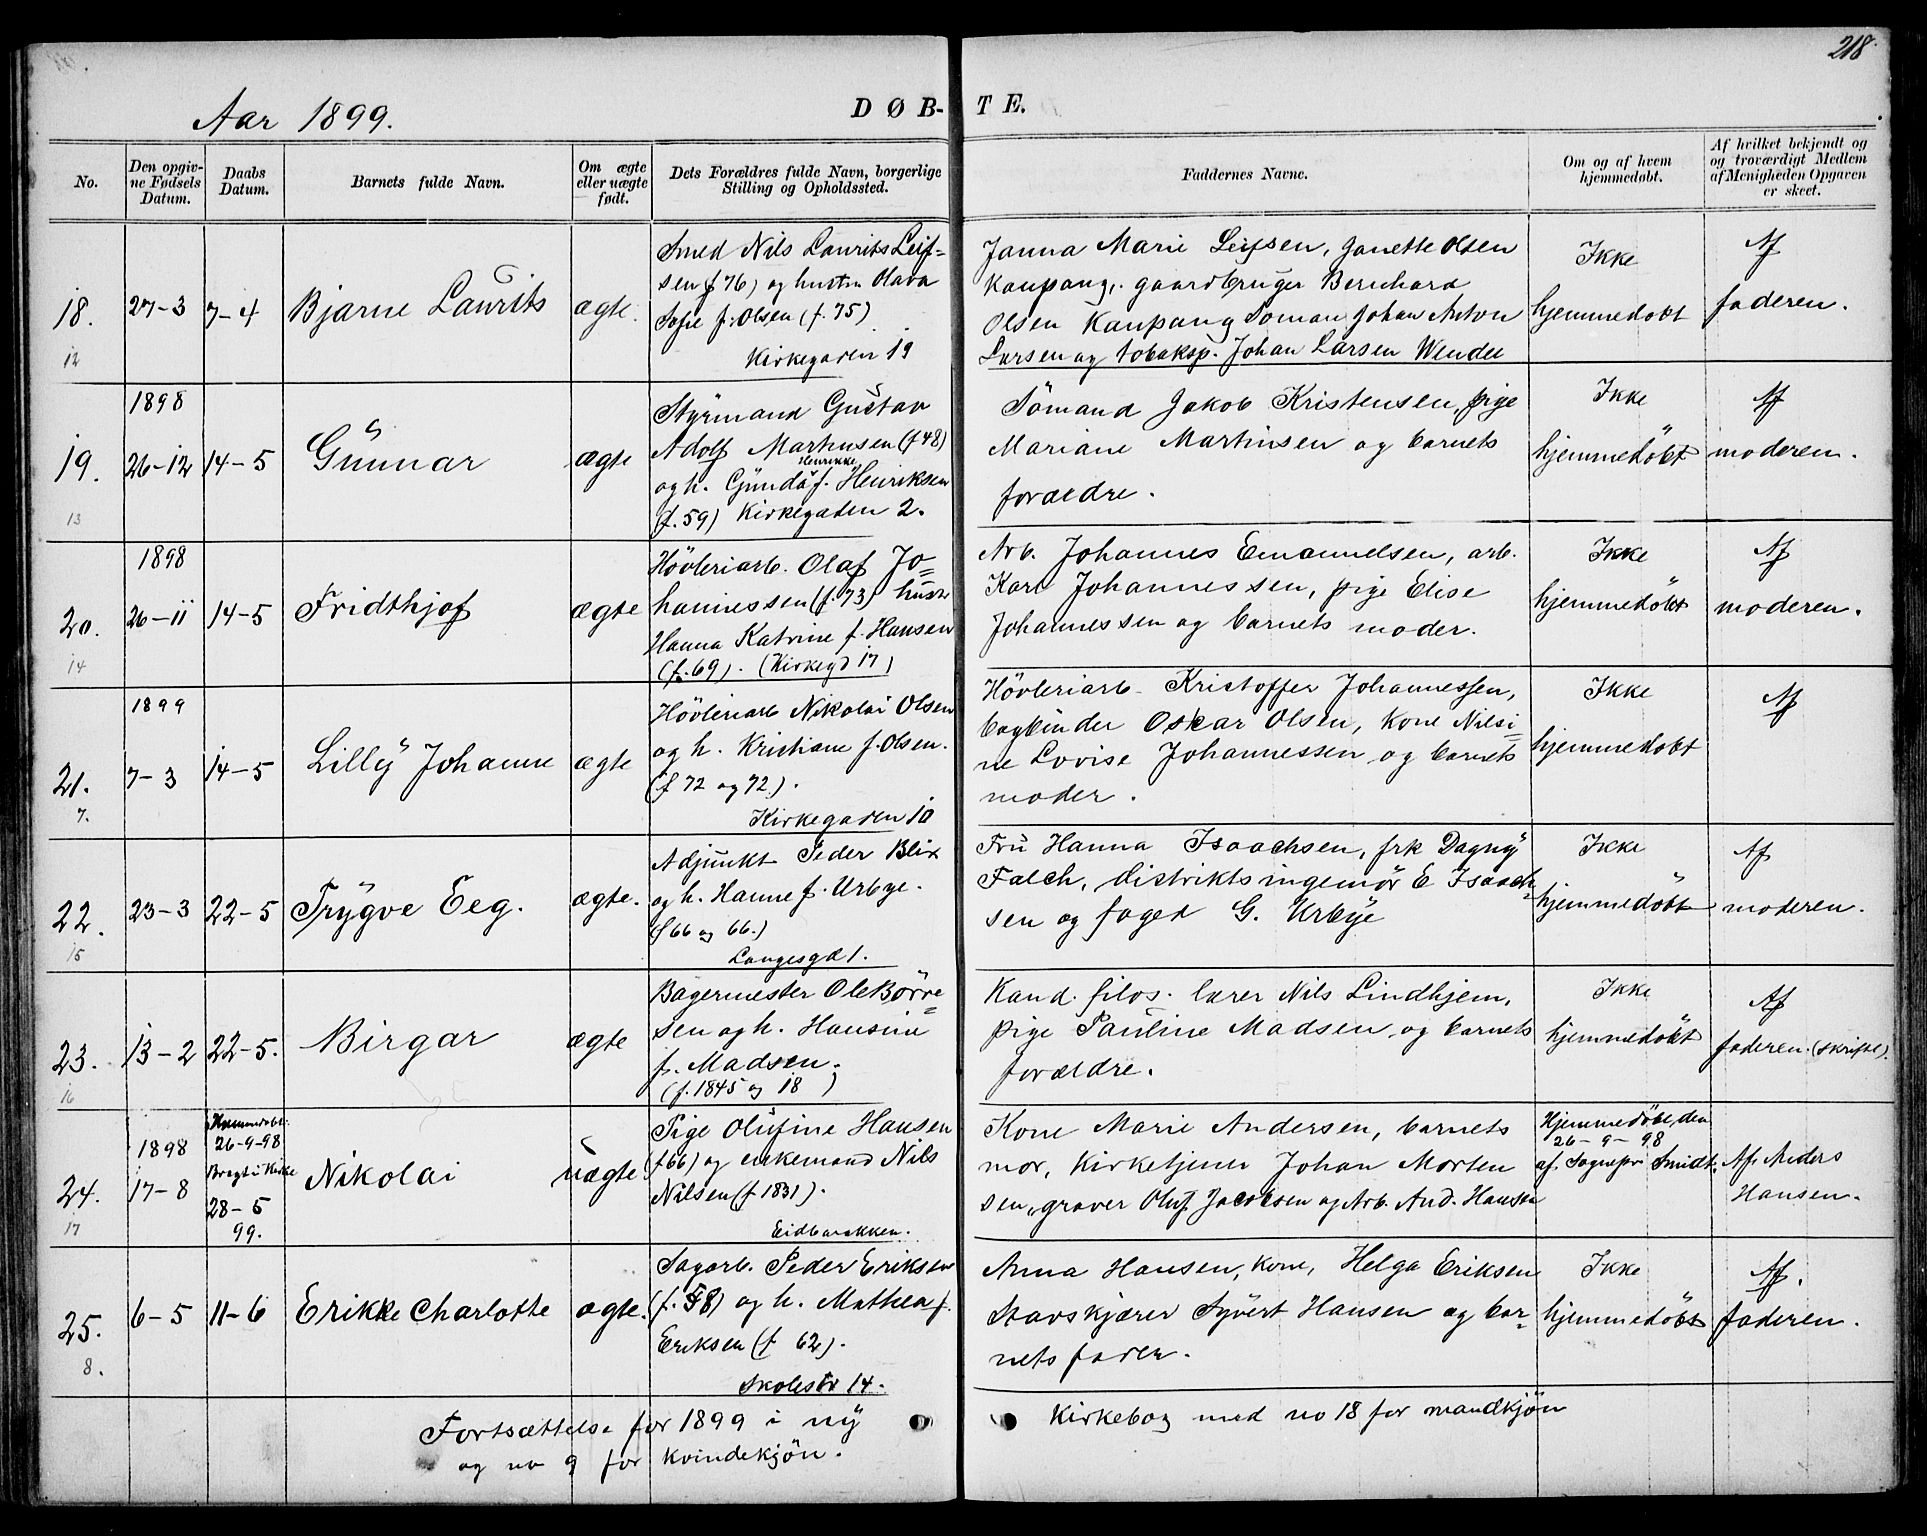 218.
Aar 1899.
DØB-
TE.
No.
Den opgiv-
ne Fødsels
Datum.
Daabs
Datum.
Barnets fulde Navn.
Om ægte
eller uægte
født.
Dets Forældres fulde Navn, borgerlige
Stilling og Opholdssted.
Faddernes Navne.
Om og af hvem
hjemmedøbt.
Af hvilket bekjendt og
og troværdigt Medlem
af Menigheden Opgaven
er skeet.
18.
12
27-3
7-4
Bjarne Laurits
ægte.
Smed Nils Laurits Leif=
sen (f 76) og hustru Olava
Sofie f. Olsen (f. 75)
Kirkegaden 19
Janna Marie Leifsen, Janette Olsen
Kaupang, gaardbruger Bernhard
Olsen Kaupang Sömand Johan Anton
Larsen og tobaksp. Johan Larsen Wendel
Ikke
hjemmedöbt
Af
faderen.
19.
13
1898
26-12
14-5
Gunnar
ægte
Styrmand Gustav
Adolf Martinsen (f 48)
Henrikke
og h. Gunda f. Henriksen
(f. 59) Kirkegaden 2.
Sömand Jakob Kristensen, pige
Mariane Martinsen og barnets
forældre.
Ikke
hjemmedöbt
Af
moderen.
20.
14
1898
26-11
14-5
Fridthjof
ægte
Hövleriarb. Olaf Jo=
hannessen (f. 73) hustr
Hanna Katrine f. Hansen
(f. 69). (Kirkegd 17)
Arb. Johannes Emanuelsen, arb.
Karl Johannessen, pige Elise
Johannessen og barnets moder.
Ikke
hjemmedöbt
Af
moderen.
21.
7.
1899
7-3
14-5
Lilly Johanne
ægte
Hövleriarb Nikolai Olsen
og h. Kristiane f. Olsen.
(f 72 og 72).
Kirkegaden 10
Hövleriarb. Kristoffer Johannessen,
bogbinder Oskar Olsen, Kone Nilsi=
ne Lovise Johannessen og barnets
moder.
Ikke
hjemmedöbt
Af
22.
15
23-3
22-5
Trygve Eeg.
ægte.
Adjunkt Peder Blix
og h. Hanne f. Urbye.
(f 66 og 66.)
Langesgd 1.
Fru Hanna Isaachsen, frk Dagny
Falch, Distriktsingeniör E Isaach=
sen og foged G. Urbye
Ikke
hjemmedöbt
Af
moderen.
23.
16
13-2
22-5.
Birgar
ægte
Bagermester Ole Börre=
sen og h. Hansine
f. Madsen.
(f. 1845 og 18 )
Kand. filos. lærer Nils Lindhjem,
pige Pauline Madsen og barnets
forældre.
Ikke
hjemmedöbt
Af
faderen. (skriftl).
24.
17
1898
17-8
Hjemmedöbt.
26-9-98
Bragt i Kirke
28-5
99.
Nikolai
uægte
Pige Olufine Hansen
(f 66) og enkemand Nils
Nilsen (f 1831).
Eidbarakken.
Kone Marie Andersen, barnets
mor, Kirketjener Johan Morten
sen, graver Oluf Jacobsen og Arb. And. Hansen
Hjemmedöbt, den
26-9-98
af Sognepr Smidt.
Af Anders
Hansen.
25.
8.
6-5
11-6
Erikke Charlotte
ægte.
Sagarb. Peder Eriksen
(f. 58) og h. Mathea f.
Eriksen (f 62).
Skolestr 14.
Anna Hansen, kone, Helga Eriksen
Stavskjærer Syvert Hansen og bar=
nets fader.
Ikke
hjemmedöbt
Af.
faderen.
Fortsættelse for 1899 i ny
Kirkebog med no 18 for mandkjön
og no 9 for kvindekjön.